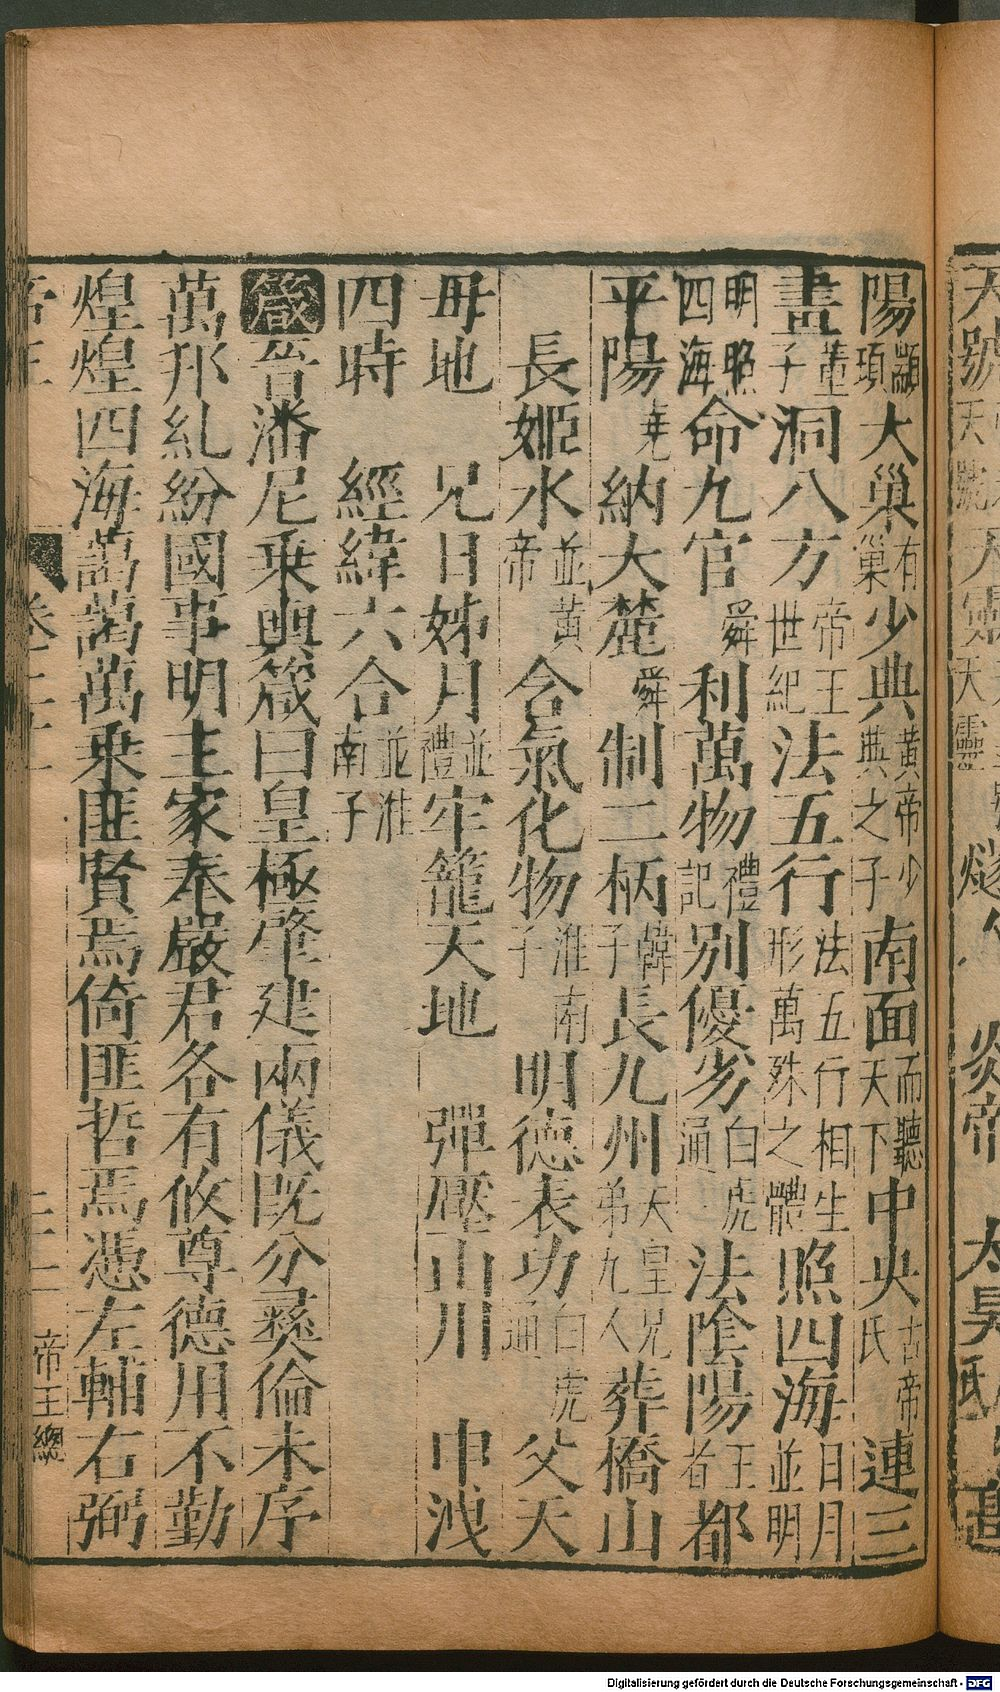 陽顓頊大巢有巢少典黃帝少典之子南面而聽天下中央古帝氏連三
畫董子洞八方帝王世紀法五行法五行相生形萬殊之體照四海日月並明
明照四海命九官舜利萬物禮記別優劣白虎通法陰陽王者都
平陽堯納大麓舜制二柄韓子長九州天皇兄弟九人葬橋山
長姬水並黃帝含氣化物淮南子明德表功白虎通父天
毋地 兄日姊月並禮牢籠天地 彈壓山川 申洩
四時 經緯六合並淮南子
箴晉潘尼乘輿箴曰皇極肇建兩儀既分彝倫未序
萬邦紛紜國事明主家奉嚴君各有攸尊德用不勤
煌煌四海藹藹萬乘匪賢焉倚匪哲焉憑左輔右弼
帝王總